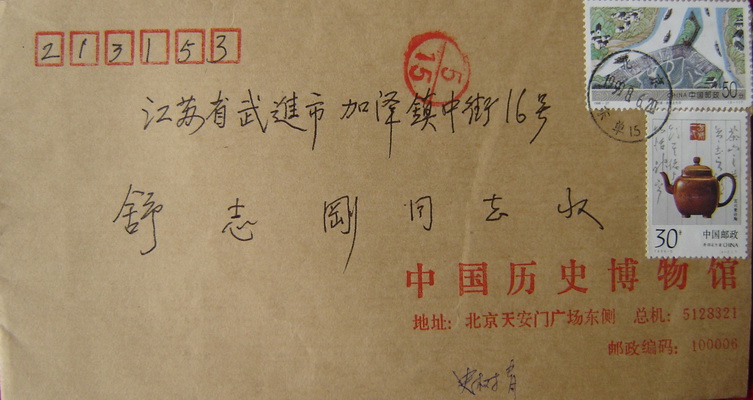 213153
5
15
江苏省武進市加泽鎮中街16号
舒志剛同志收
50分
中国邮政
CHINA
30分
中国邮政
CHINA
中国历史博物馆
地址：北京天安门广场东侧 总机：5128321
邮政编码：100006
史树青